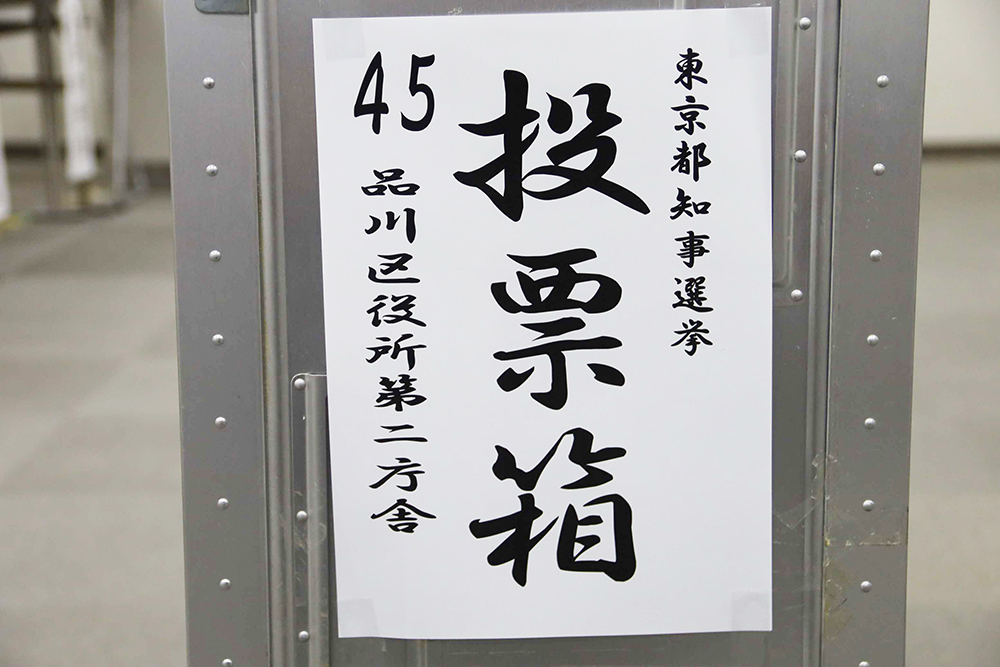 東京都知事選挙
投票箱
45 品川区役所第二庁舎